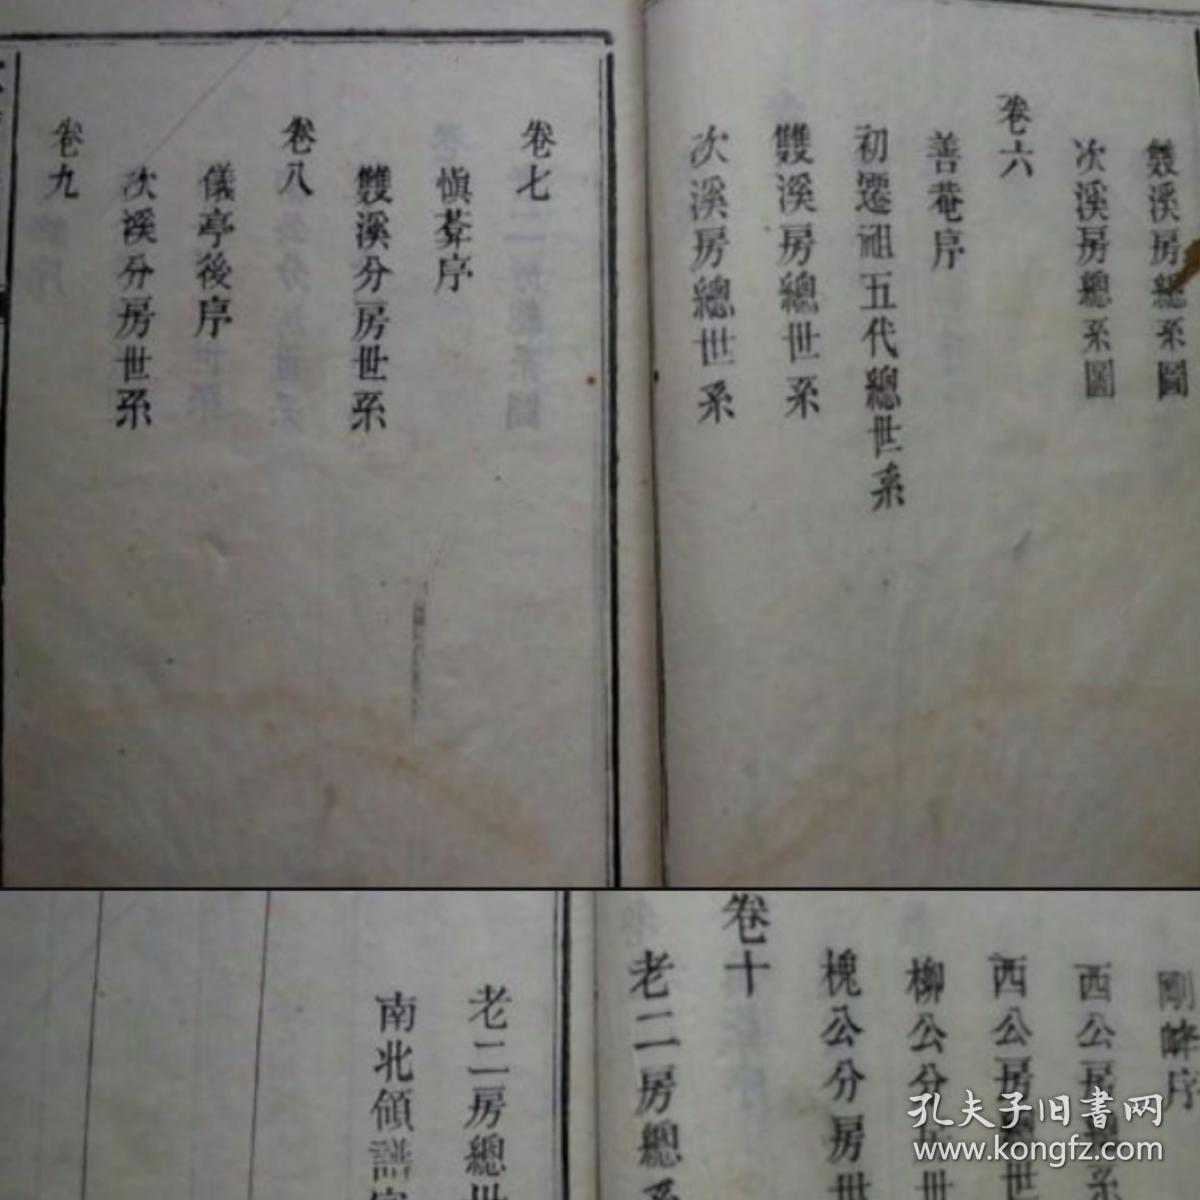 雙溪房總系圖
次溪房總系圖
卷六
善菴序
初遷祖五代總世系
雙溪房總世系
次溪房總世系
卷七
慎葊序
雙溪分房世系
卷八
儀亭後序
次溪分房世系
卷九
剛峰序
西公房
西公房
柳公分
槐公分房世
卷十
老二房總系
老二房總世
南北領譜字
孔夫子旧書网
www.kongfz.com